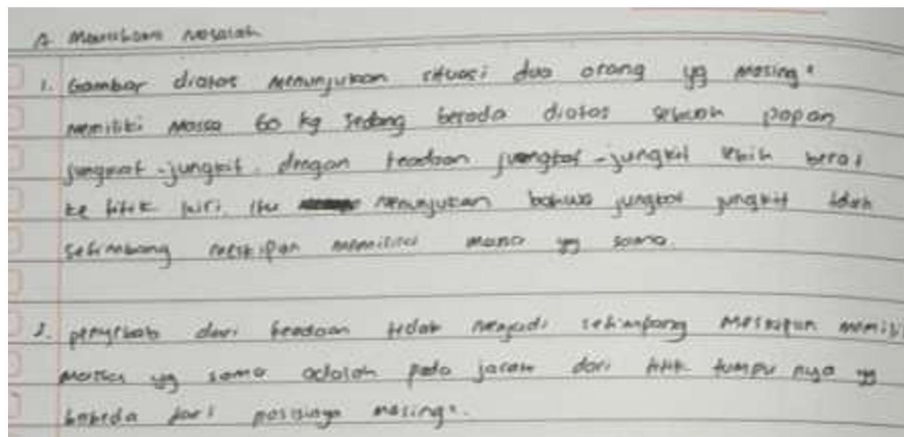 A. Memahami Masalah
1. Gambar diatas menunjukan situasi dua orang yg masing²
memiliki massa 60 kg sedang berada diatas sebuah papan
jungkat-jungkit. dengan keadaan jungkat-jungkit lebih berat
ke titik kiri. itu menunjukan bahwa jungkat jungkit tidak
seimbang meskipun memiliki massa yg sama.
2. penyebab dari keadaan tidak menjadi seimbang meskipun memili
massa yg sama adalah pada jarak dari titik tumpu nya yg
berbeda dari posisinya masing².